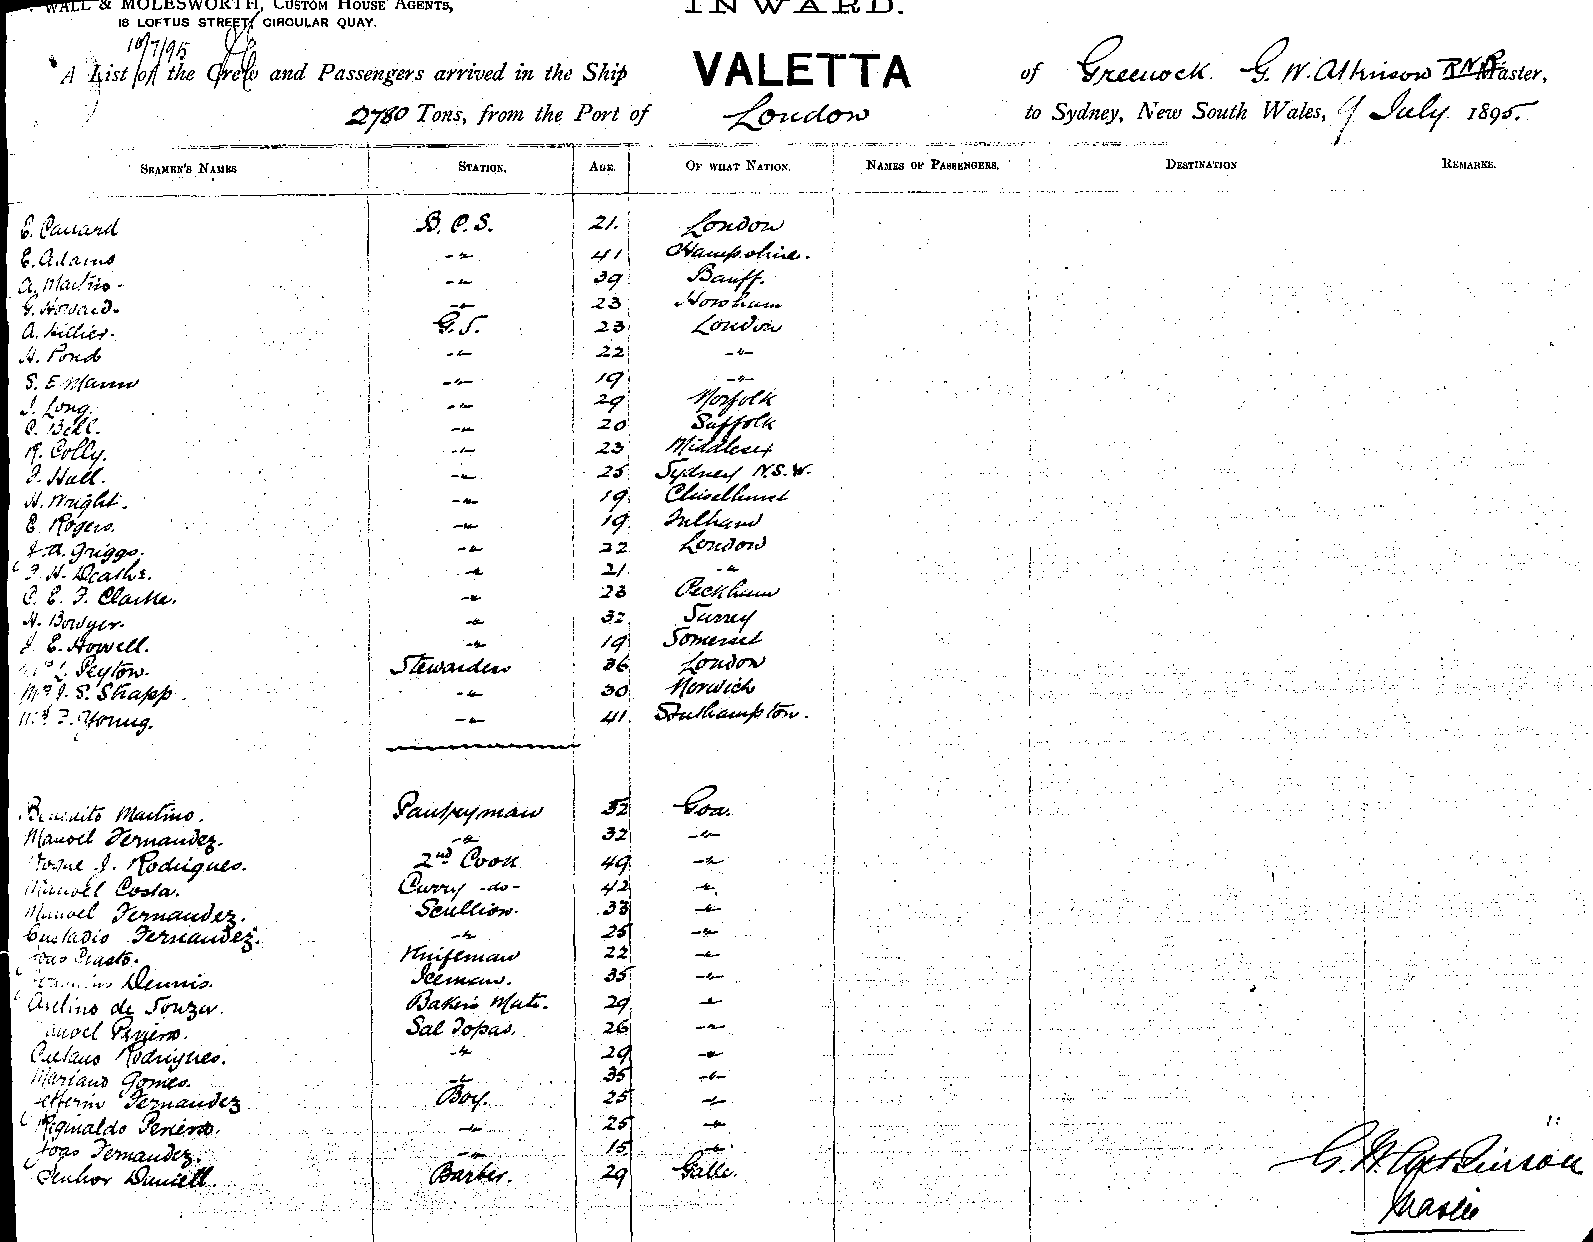 WALL & MOLESWORTH, CUSTOM HOUSE AGENTS,
18 LOFTUS STREET, CIRCULAR QUAY.
INWARD.
10/7/95
A List of the Crew and Passengers arrived in the Ship VALETTA of Greenock. G. W. Atkinson RNR Master,
2780 Tons, from the Port of London to Sydney, New South Wales, 9 July 1895.
SEAMEN'S NAMES STATION. AGE. OF WHAT NATION. NAMES OF PASSENGERS. DESTINATION REMARKS.
E. B. C. S. 21. London
E. Adams -"- 41 Hampshire.
A. Martin - -"- 39 Banff.
G. Howard. -"- 23 Horsham
A. Hillier. G.S. 23 London
H. Pond -"- 22 -"-
S. E Mann -"- 19 -"-
J. Long. -"- 29 Norfolk
C. Bell. -"- 20 Suffolk
R. Colly. -"- 23 Middlesex
J. Hall. -"- 25 Sydney N.S.W.
H. Wright. -"- 19 Chiselhurst
E. Rogers. -"- 19 Fulham
J. A. Griggs. -"- 22 London
F. H. Deaths. -"- 21 -"-
C. E. F. Clarke. -"- 23 Peckham
H. Bowyer. -"- 32 Surrey
J. E. Howell. -"- 19 Somerset
Mrs L. Peyton. Stewardess 36 London
Mrs J. S. Shapp. -"- 30 Norwich
Mrs F. Young. -"- 41. Southampton.
Martino. Pantryman 52 Goa.
Manoel Fernandez. -"- 32 -"-
J. Rodrigues. 2nd Cook 49 -"-
Manoel Costa. Curry -do- 42 -"-
Manoel Fernandez. Scullion. 33 -"-
Custadio Fernandez. -"- 25 -"-
Knifeman 22 -"-
Dennis. Iceman. 35 -"-
Avelino de Souza. Bakers Mate. 29 -"-
Manoel Sal Topas. 26 -"-
Caetano Rodrigues. -"- 29 -"-
Mariano Gomes. -"- 35 -"-
Fernandez Boy. 25 -"-
Reginaldo -"- 25 -"-
Joao Fernandez. -"- 15 -"-
Barber. 29 Galle.
G. W. Atkinson
Master